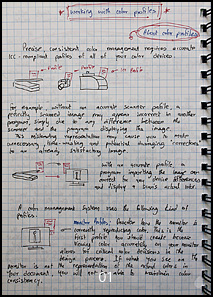 Working with color profiles
About color profiles
Precise, consistent color management requires accurate
ICC-compliant profiles of all of your color devices.
Profile Profile
For example, without an accurate scanner profile, a
perfectly scanned image may appear incorrect in another
program, simply due to any difference between the
scanner and the program displaying the image.
This misleading representation may cause you to make
unnecessary, time-wasting, and potentially damaging "corrections"
to an already satisfactory image.
With an accurate profile, a
program importing the image can
correct for any device differences
and display a scan's actual color
A color management system uses the following kind of
Profiles:
Monitor Profiles: Describe how the monitor is
currently reproducing color. This is the
first profile you should create because
viewing color accurately on your monitor
allows for critical color decisions in the
design process. If what you see on the
monitor is not the representative of the actual colors in
your document, you will not be able to maintain color
consistency.
01